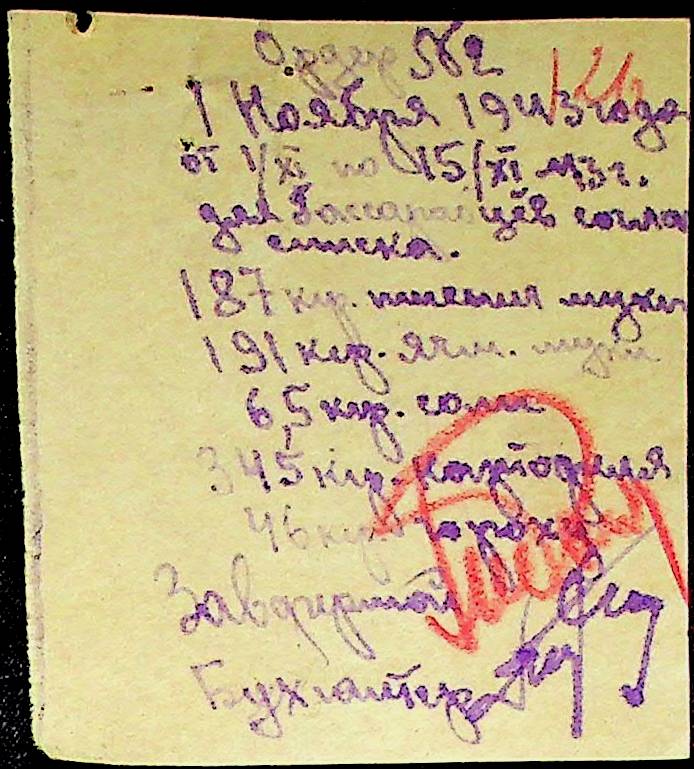 Ордер №2
1 Ноября 1943 года
от 1/XI по 15/XI 43г.
для Бассарабцев согла
списка.
187 кгр. пшенич муки
191 кгр. ячм. муки
6,5 кгр. соли
345 кгр. картофеля
46 кгр гороху
Завфермой
Бухгалтер